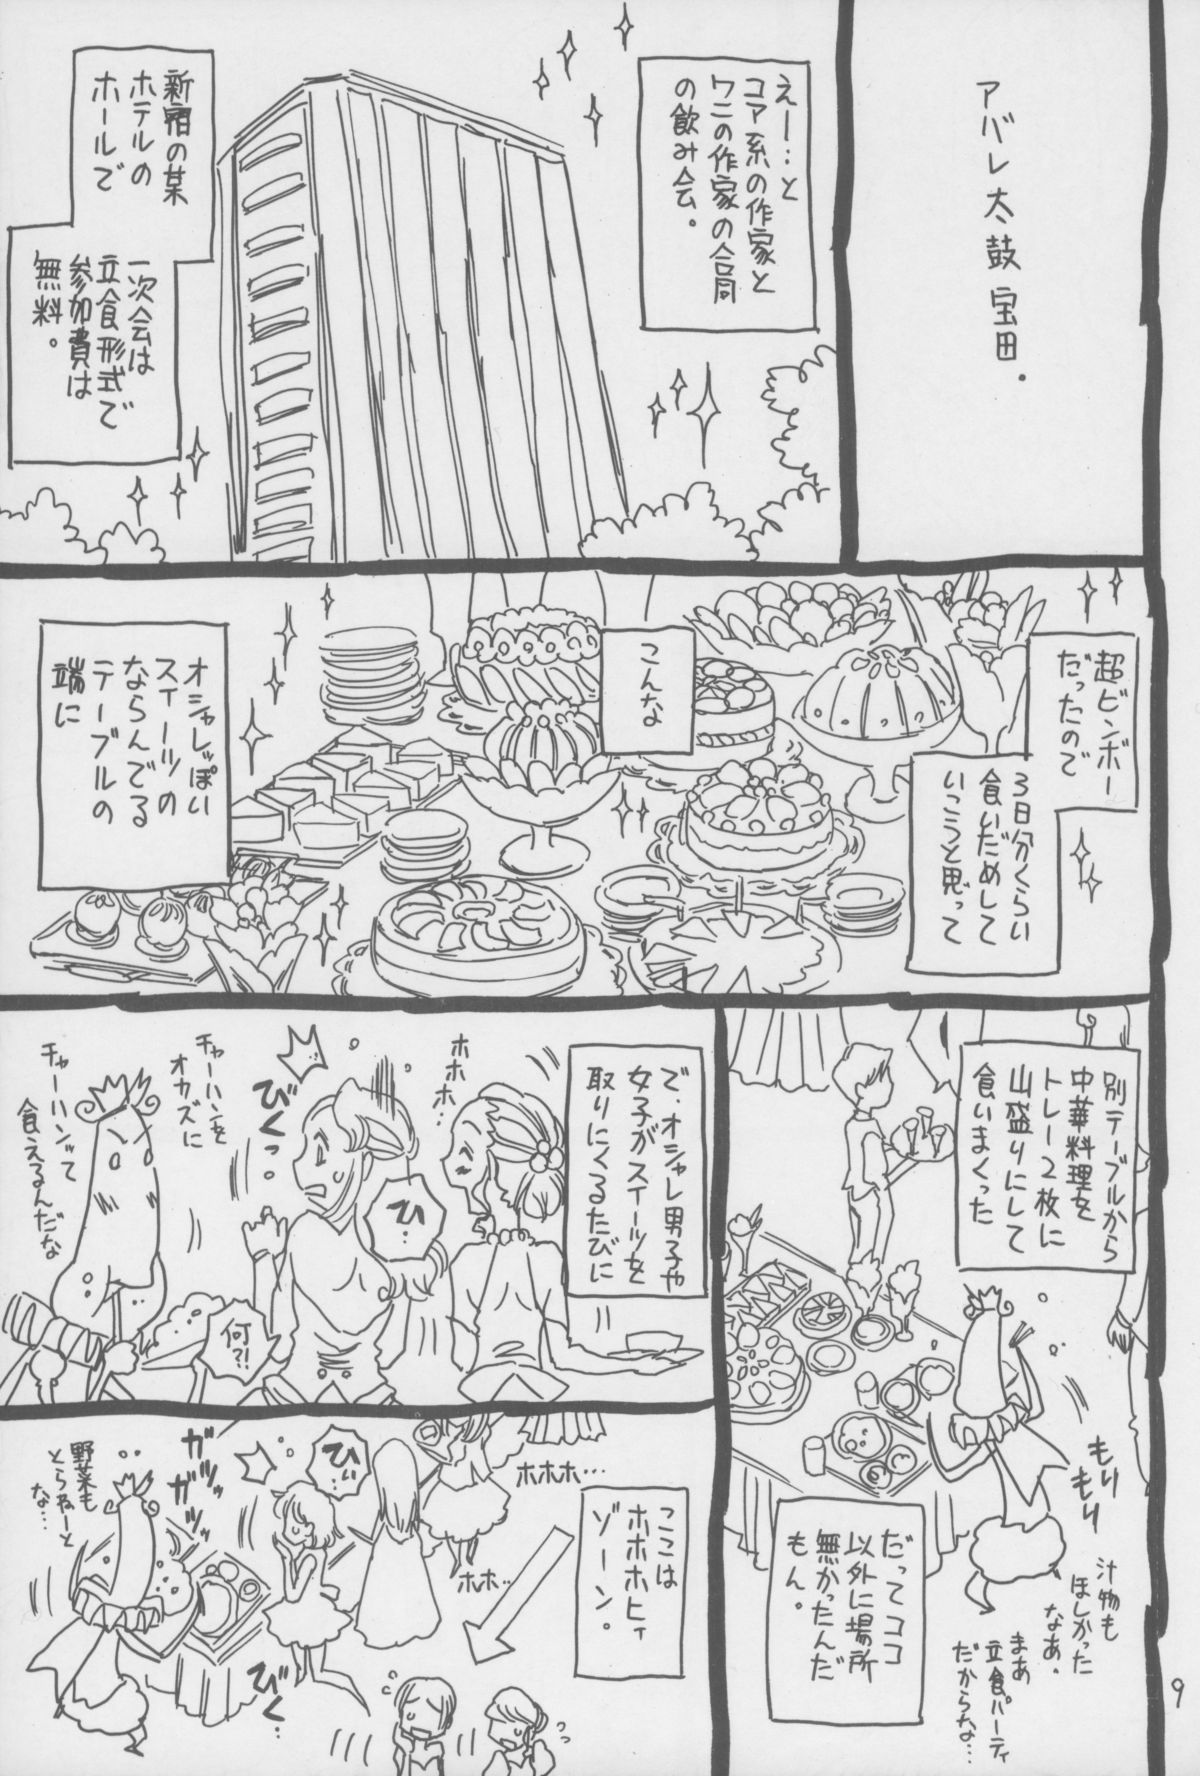 アバレ太鼓 宝田.
えー…と
コア系の作家と
ワニの作家の合同
の飲み会。
新宿の某
ホテルの
ホールで
一次会は
立食形式で
参加費は
無料。
超ビンボー
だったので
3日分くらい
食いだめして
いこうと思って
こんな
オシャレっぽい
スイーツの
ならんでる
テーブルの
端に
別テーブルから
中華料理を
トレー2枚に
山盛りにして
食いまくった
もり
もり
汁物も
ほしかった
なあ。
まあ
立食パーティ
だからな…
だってココ
以外に場所
無かったんだ
もん。
で、オシャレ男子や
女子がスイーツを
取りにくるたびに
ホホホ…
ひっ…
びくっ
何?!
チャーハンを
オカズに
チャーハンって
食えるんだな
ここは
ホホホヒィ
ゾーン。
ホホホ…
ホホ…
ひぃ…
ガッ
ガツガツッ
びく…
野菜も
とらねーと
な…
9